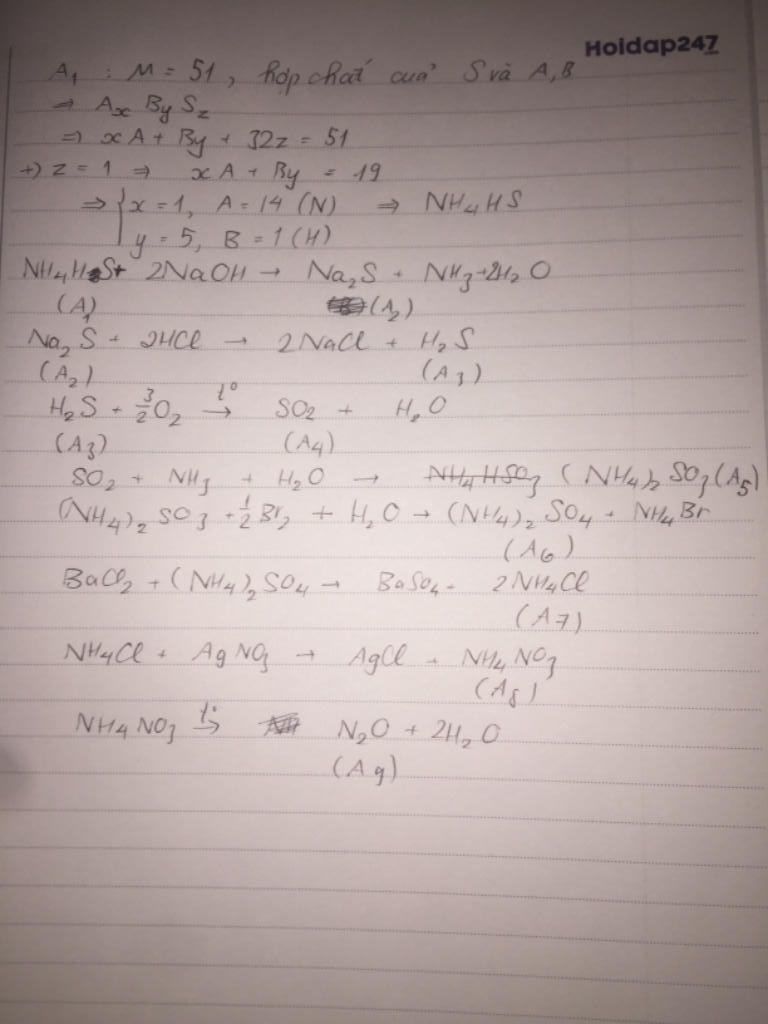 Hoidap247
A₁ : M = 51, hợp chất của S và A, B
⇒ AₓBᵧS_z
⇒ xA + By + 32z = 51
+) z = 1 ⇒ xA + By = 19
⇒ { x = 1, A = 14 (N) ⇒ NH₄HS
y = 5, B = 1 (H)
NH₄HS + 2NaOH → Na₂S + NH₃ + 2H₂O
(A₁) (A₂)
Na₂S + 2HCl → 2NaCl + H₂S
(A₂) (A₃)
H₂S + 3/2 O₂ →(t°) SO₂ + H₂O
(A₃) (A₄)
SO₂ + NH₃ + H₂O → ~~NH₄HSO₃~~ (NH₄)₂SO₃ (A₅)
(NH₄)₂SO₃ + 1/2 Br₂ + H₂O → (NH₄)₂SO₄ + NH₄Br
(A₆)
BaCl₂ + (NH₄)₂SO₄ → BaSO₄ - 2NH₄Cl
(A₇)
NH₄Cl + AgNO₃ → AgCl + NH₄NO₃
(A₈)
NH₄NO₃ →(t°) N₂O + 2H₂O
(A₉)